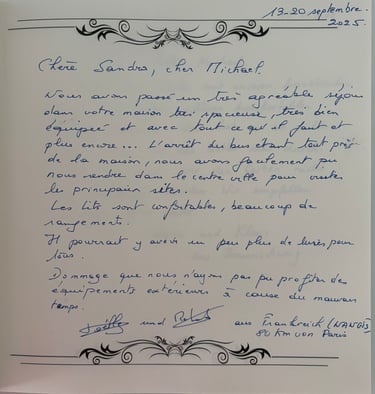 13-20 septembre.
2025.
Chère Sandra, cher Michael.
Nous avons passé un très agréable séjour
dans votre maison très spacieuse, très bien
équipée et avec tout ce qu'il faut et
plus encore... L'arrêt du bus étant tout près
de la maison, nous avons facilement pu
nous rendre dans le centre ville pour visiter
les principaux sites.
Les lits sont confortables, beaucoup de
rangements.
Il pourrait y avoir un peu plus de livres pour
tous.
Dommage que nous n'ayons pas pu profiter des
équipements extérieurs à cause du mauvais
temps.
Joëlle und aus Frankreich (NANGIS)
80 km von Paris